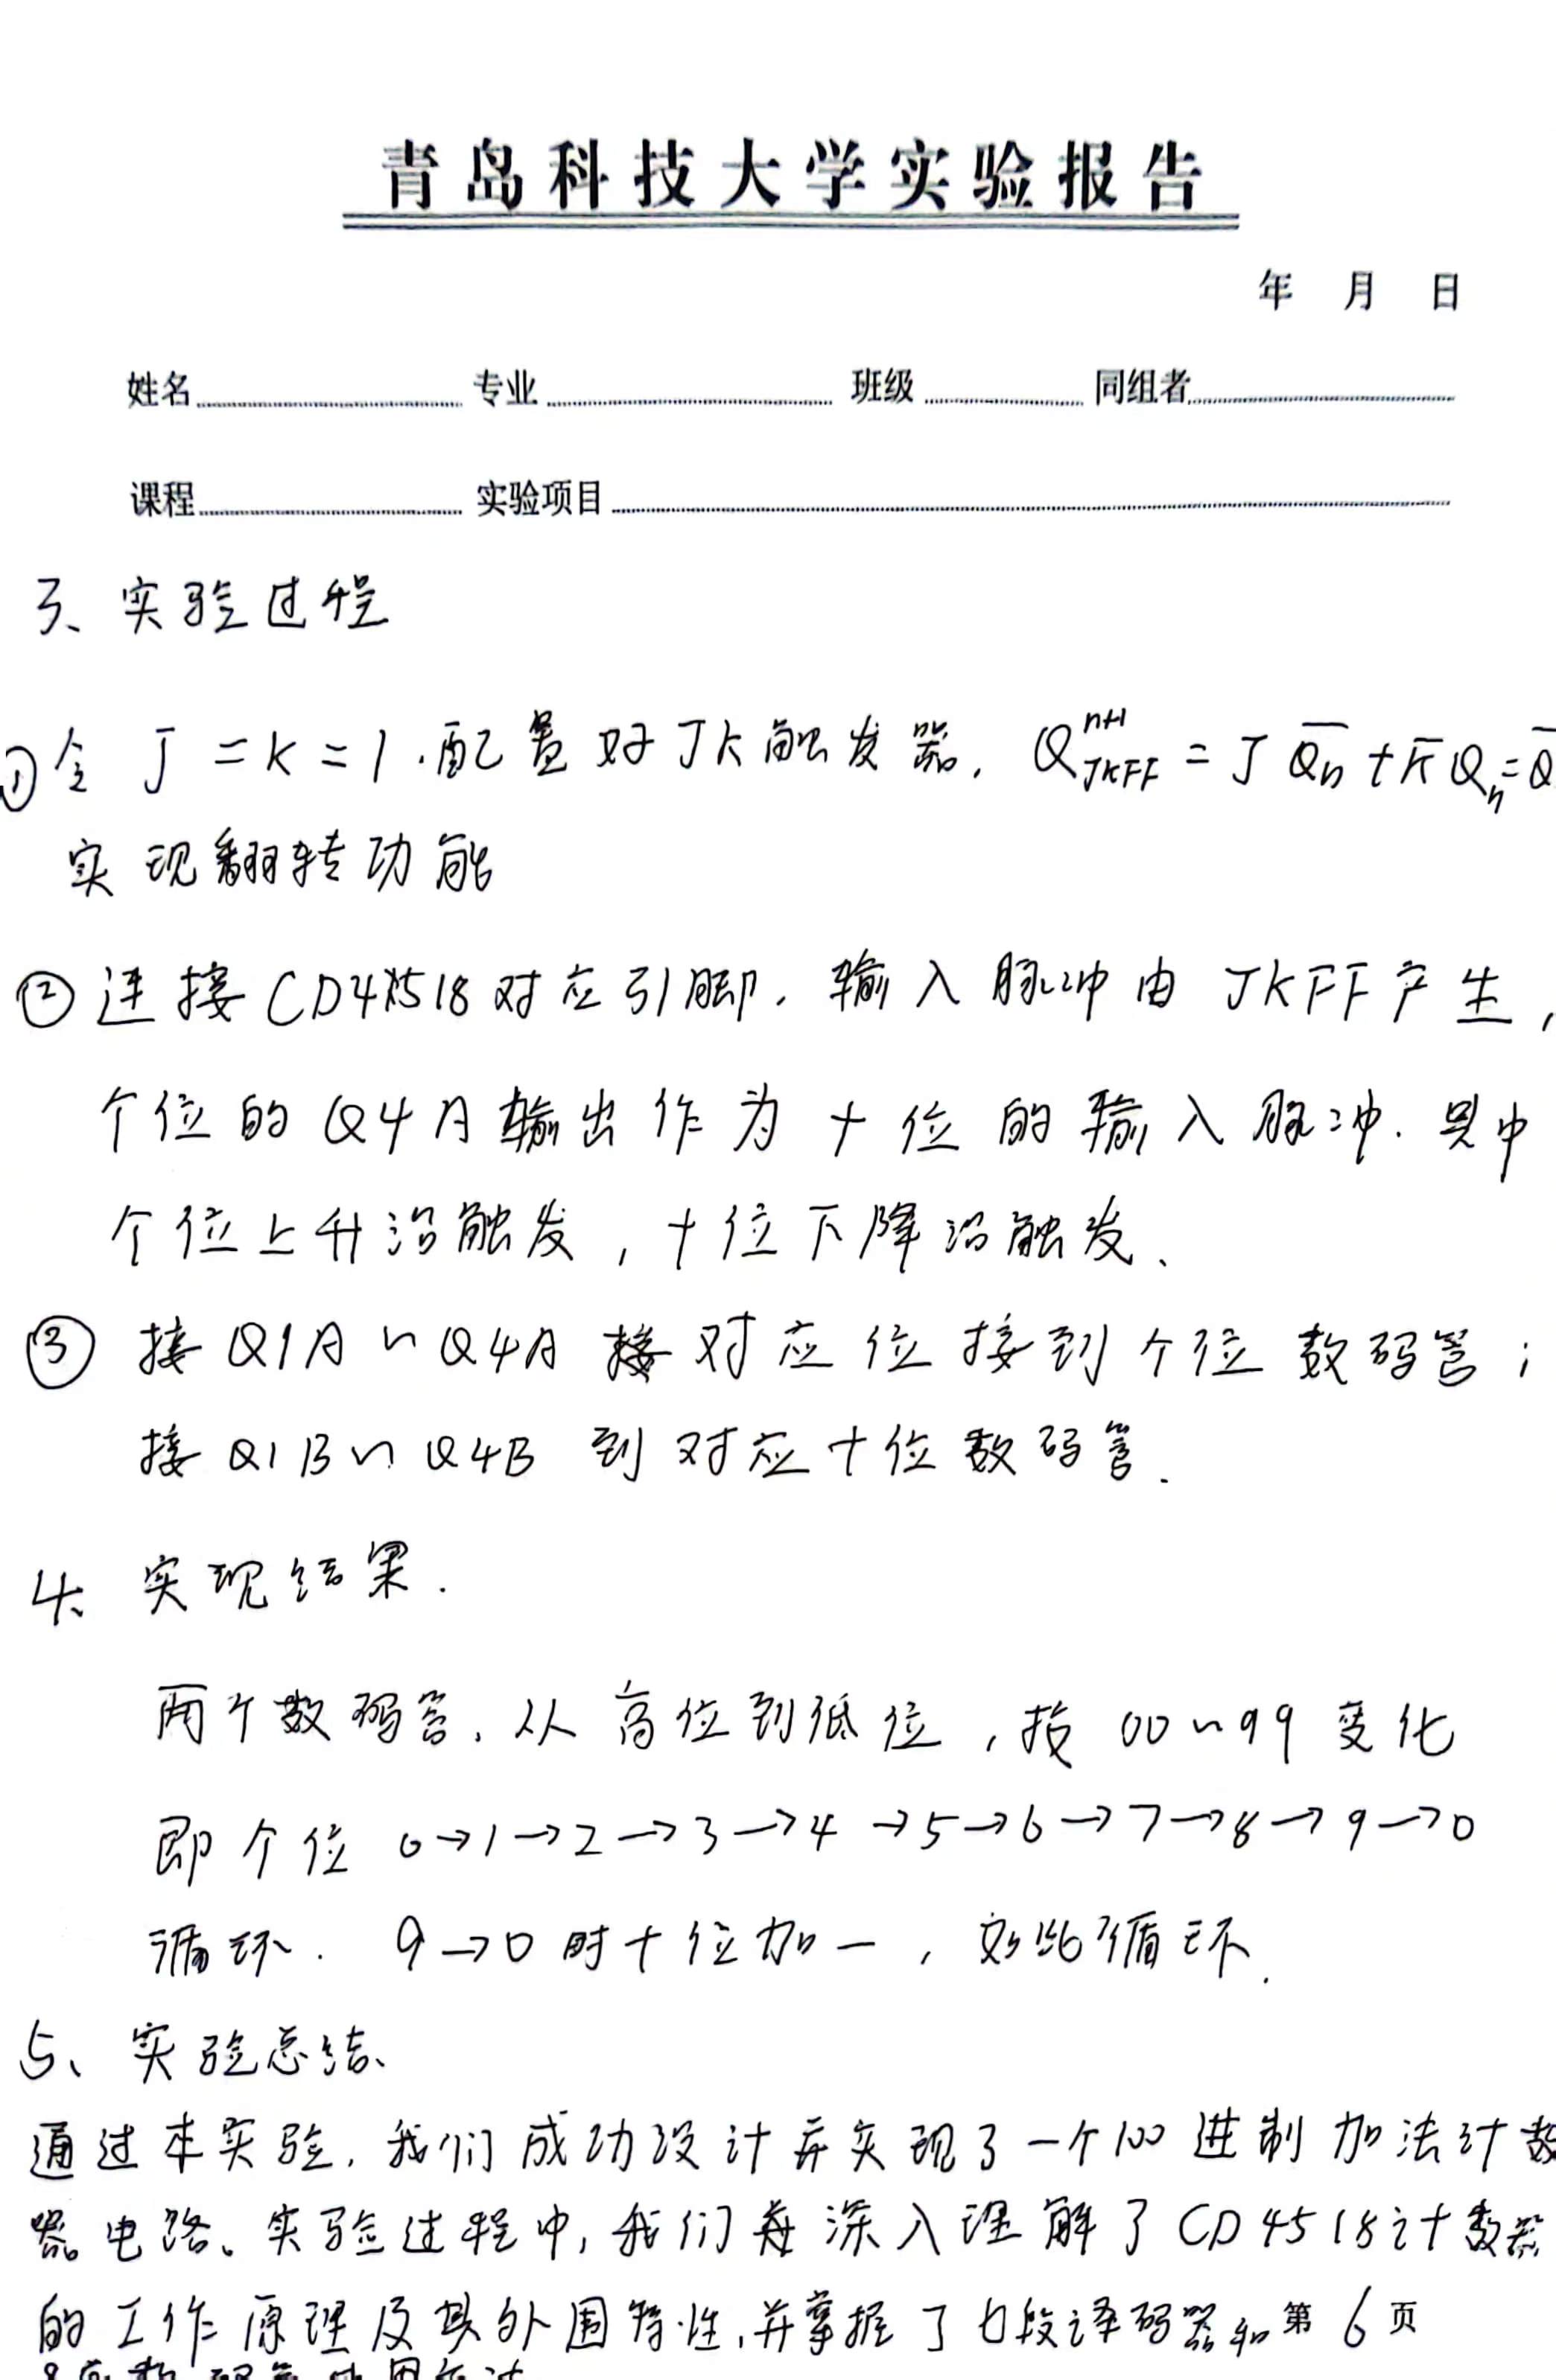 青岛科技大学实验报告
年 月 日
姓名 专业 班级 同组者
课程 实验项目
3、实验过程
①令 J=K=1.配置好JK触发器. Q^{n+1}_{JKFF} = J \overline{Q_n} + \overline{K} Q_n = \overline{Q}
实现翻转功能
②连接CD4518对应引脚,输入脉冲由JKFF产生,
个位的Q4A输出作为十位的输入脉冲.其中
个位上升沿触发,十位下降沿触发、
③ 接Q1A~Q4A 接对应位接到个位数码管;
接Q1B~Q4B 到对应十位数码管.
4、实现结果.
两个数码管、从高位到低位,按00~99变化
即个位 0→1→2→3→4→5→6→7→8→9→0
循环. 9→0时十位加一,如此循环.
5、实验总结、
通过本实验,我们成功设计并实现了一个100进制加法计数
器电路。实验过程中,我们 深入理解了CD4518计数器
的工作原理及其外围特性,并掌握了七段译码器和 第6页
数码管使用方法